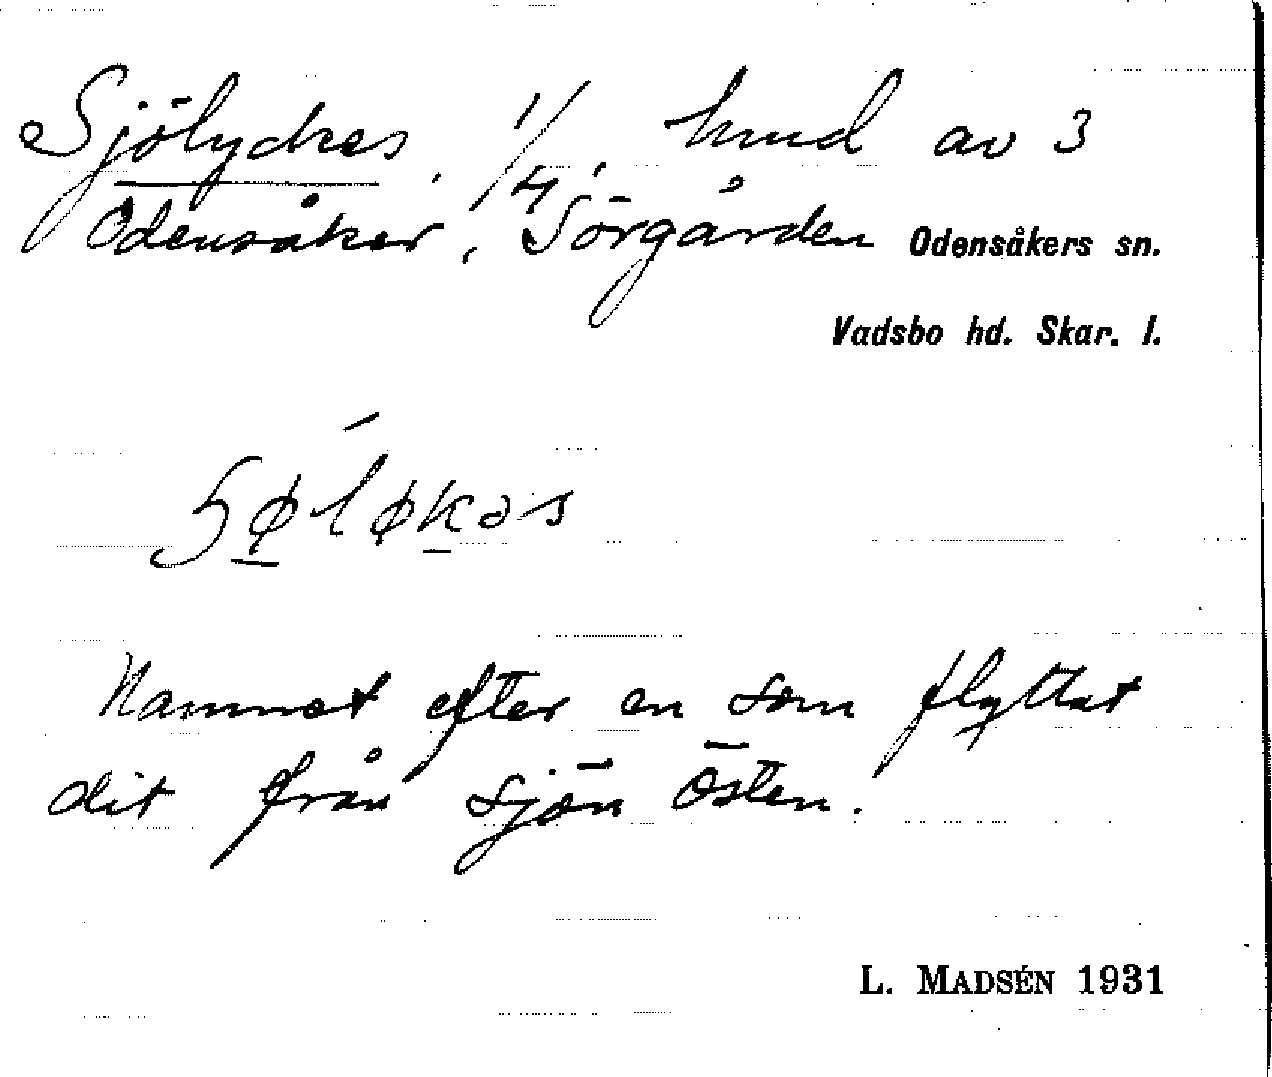 Sjölyckes, 1/4, hmd av 3
Odensåker, Sörgården Odensåkers sn.
Vadsbo hd. Skar. l.
Namnet efter en som flyttat
dit från sjön Östen.
L. MADSÉN 1931